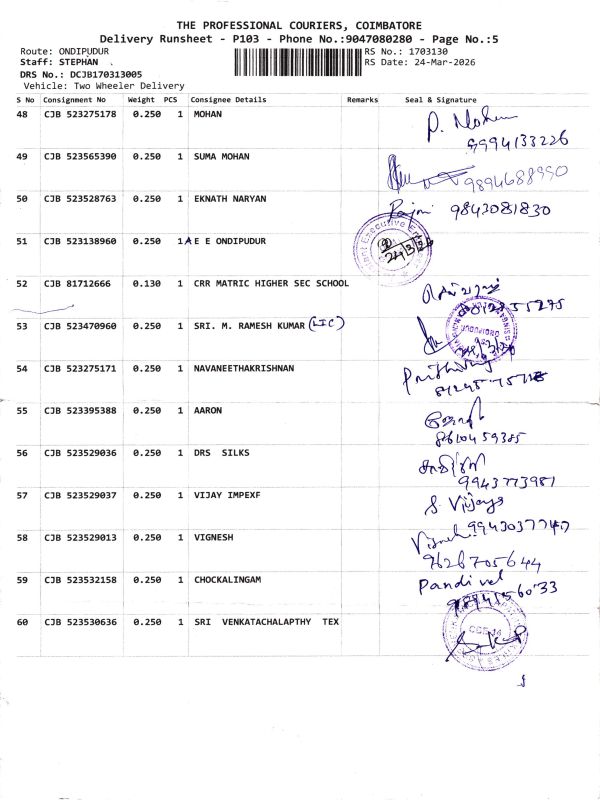 THE PROFESSIONAL COURIERS, COIMBATORE
Delivery Runsheet - P103 - Phone No.:9047080280 - Page No.:5
Route: ONDIPUDUR RS No.: 1703130
Staff: STEPHAN RS Date: 24-Mar-2026
DRS No.: DCJB170313005
Vehicle: Two Wheeler Delivery
S No Consignment No Weight PCS Consignee Details Remarks Seal & Signature
48 CJB 523275178 0.250 1 MOHAN P. Mohan
9994133226
49 CJB 523565390 0.250 1 SUMA MOHAN
9894688990
50 CJB 523528763 0.250 1 EKNATH NARYAN Rajni 9843081830
51 CJB 523138960 0.250 1 A E E ONDIPUDUR 24/3/26
52 CJB 81712666 0.130 1 CRR MATRIC HIGHER SEC SCHOOL
53 CJB 523470960 0.250 1 SRI. M. RAMESH KUMAR (LIC)
54 CJB 523275171 0.250 1 NAVANEETHAKRISHNAN
55 CJB 523395388 0.250 1 AARON
8610459385
56 CJB 523529036 0.250 1 DRS SILKS
9943773981
57 CJB 523529037 0.250 1 VIJAY IMPEXF S. Vijaya
58 CJB 523529013 0.250 1 VIGNESH Vignesh
9626705644
59 CJB 523532158 0.250 1 CHOCKALINGAM Pandivel
60 CJB 523530636 0.250 1 SRI VENKATACHALAPTHY TEX